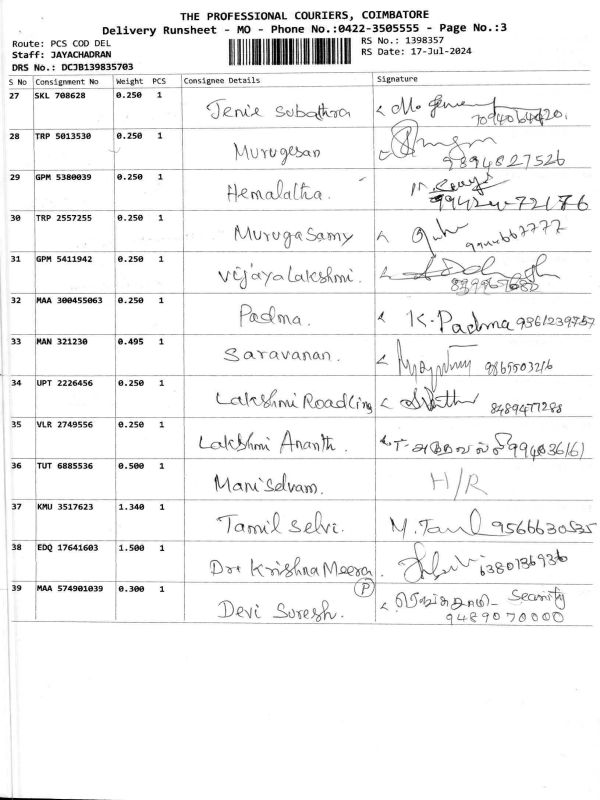 THE PROFESSIONAL COURIERS, COIMBATORE
Delivery Runsheet - MO - Phone No.:0422-3505555 - Page No.:3
Route: PCS COD DEL
RS No.: 1398357
Staff: JAYACHADRAN
RS Date: 17-Jul-2024
DRS No.: DCJB139835703
S No Consignment No Weight PCS Consignee Details Signature
27 SKL 708628 0.250 1
Jenie Subathra
28 TRP 5013530 0.250 1
Murugesan 9894827526
29 GPM 5380039 0.250 1
Hemalatha.
30 TRP 2557255 0.250 1
Murugasamy
31 GPM 5411942 0.250 1
Vijayalakshmi.
32 MAA 300455063 0.250 1
Padma. K. Padma 9361239757
33 MAN 321230 0.495 1
Saravanan. 9865503216
34 UPT 2226456 0.250 1
Lakshmi Roadling 8489477288
35 VLR 2749556 0.250 1
Lakshmi Ananth.
36 TUT 6885536 0.500 1
Maniselvam. H/R
37 KMU 3517623 1.340 1
Tamil Selvi. 9566630535
38 EDQ 17641603 1.500 1
Dr+ Krishna Meera. 6380136936
39 MAA 574901039 0.300 1
P
Devi Suresh. Security
9489070000